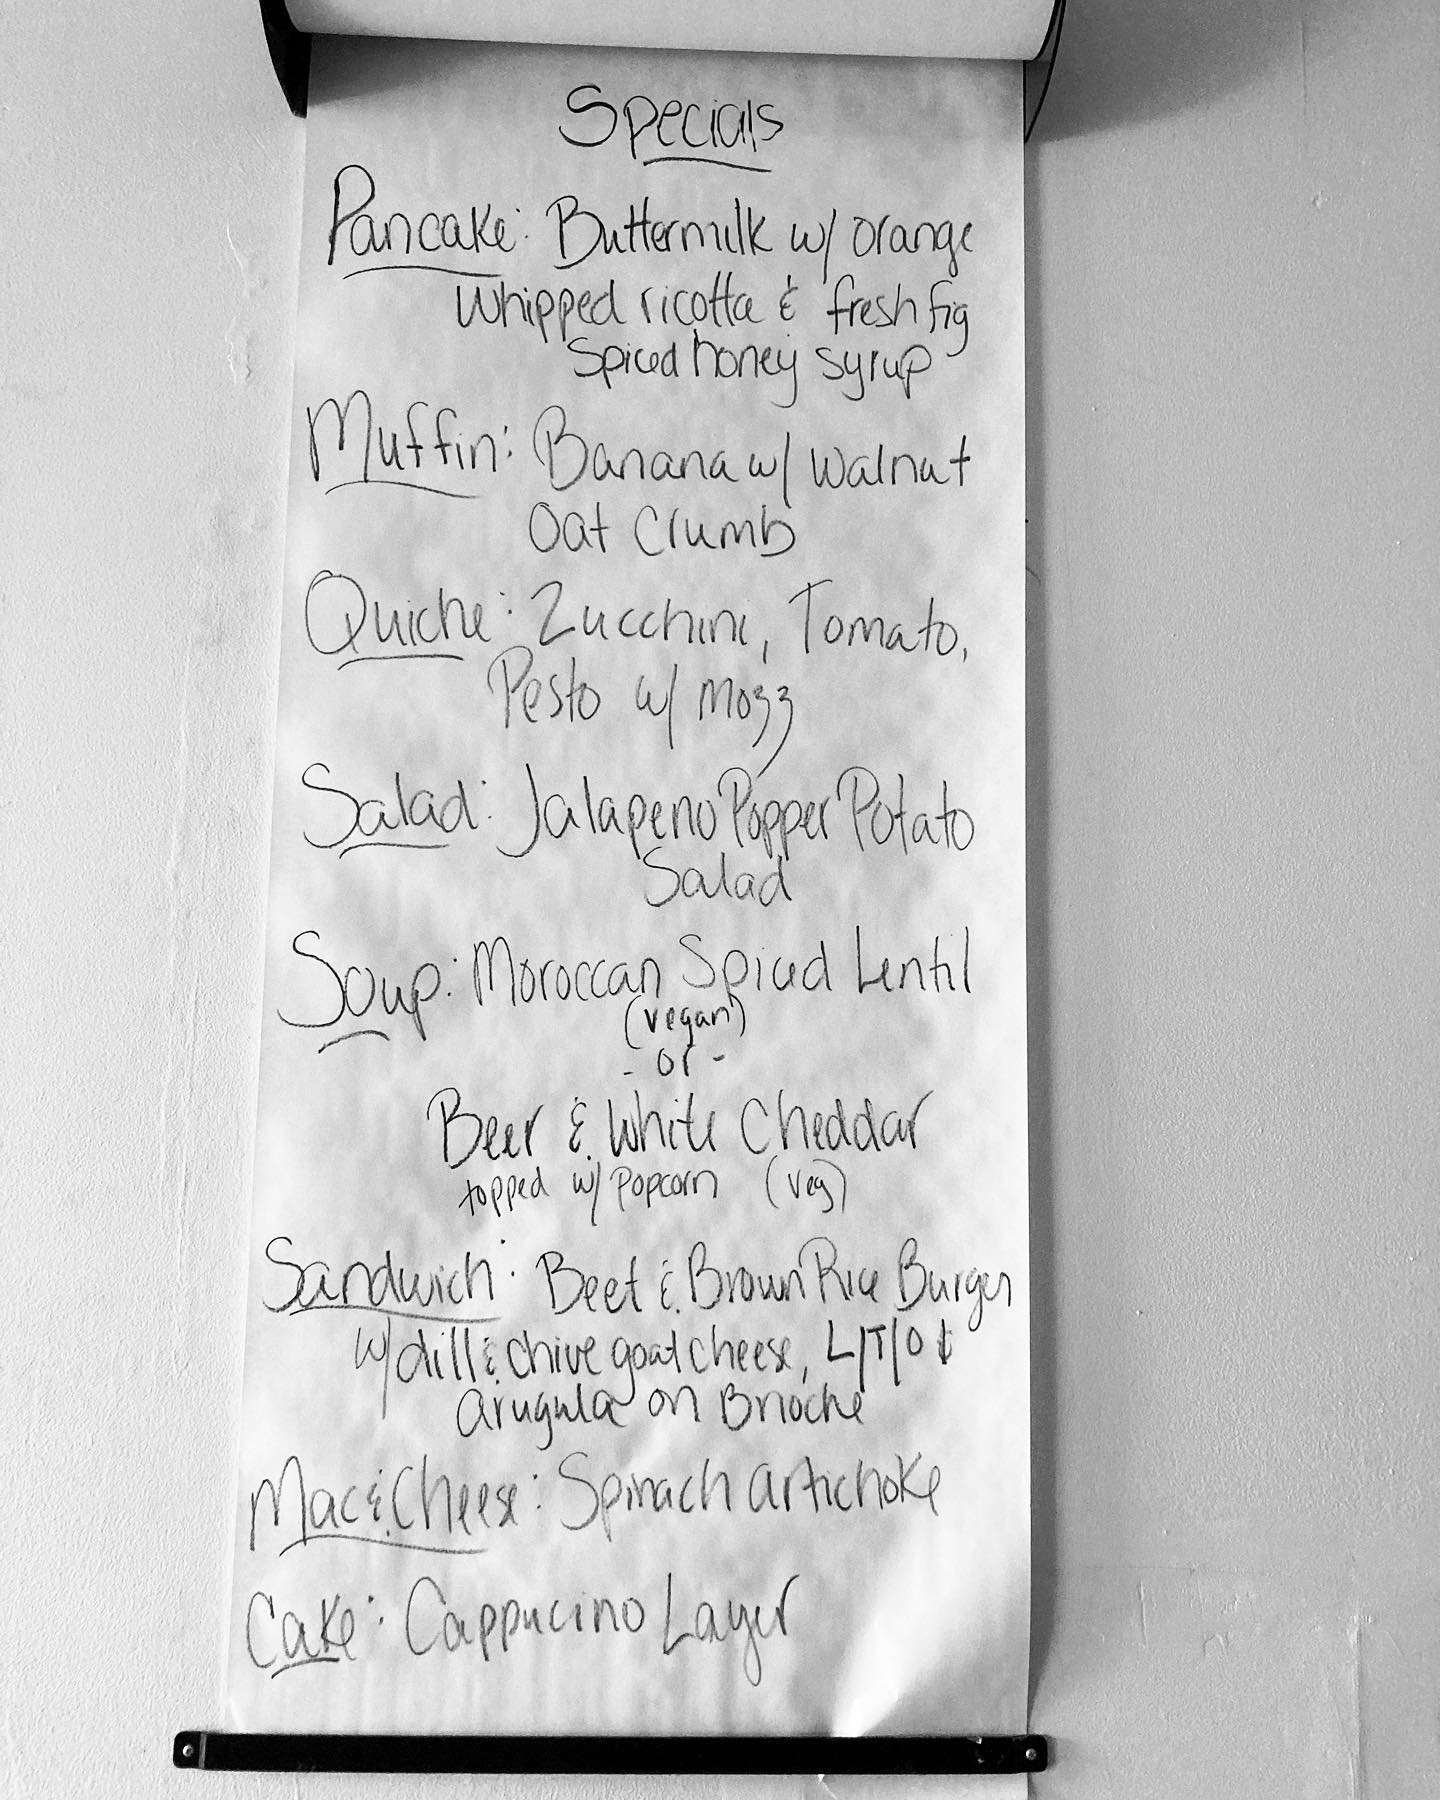 Specials
Pancake: Buttermilk w/ orange
Whipped ricotta & fresh fig
Spiced honey syrup
Muffin: Banana w/ walnut
Oat Crumb
Quiche: Zucchini, Tomato,
Pesto w/ mozz
Salad: Jalapeno Popper Potato
Salad
Soup: Moroccan Spiced Lentil
(vegan)
- or -
Beer & White Cheddar
topped w/ popcorn (veg)
Sandwich: Beet & Brown Rice Burger
w/ dill & chive goat cheese, L/T/O &
arugula on Brioche
Mac & Cheese: Spinach artichoke
Cake: Cappucino Layer